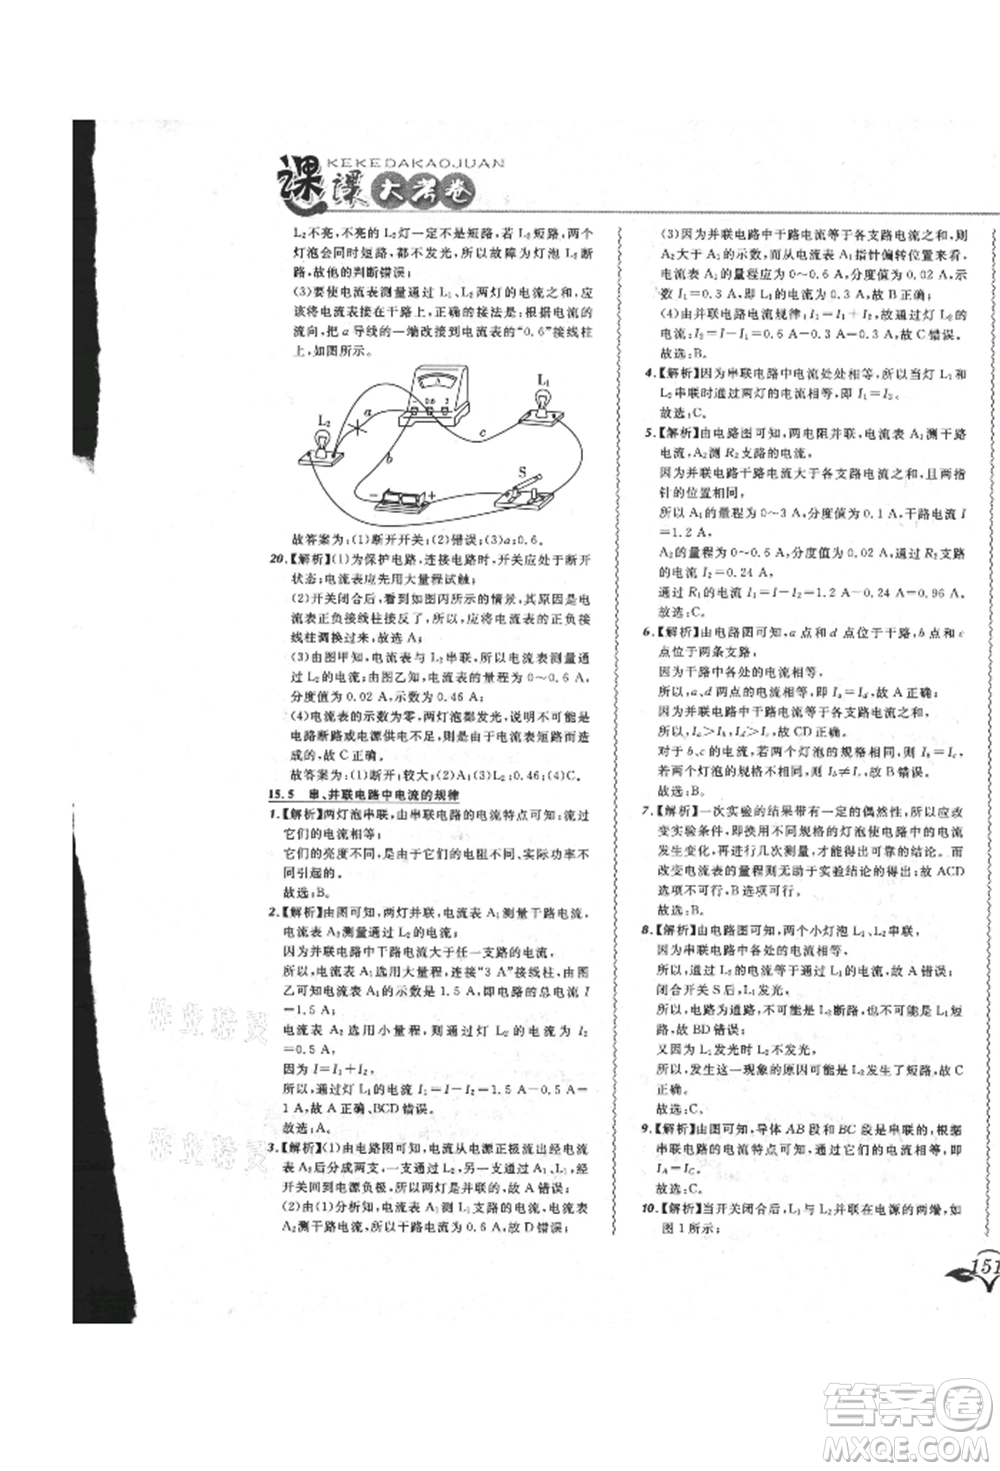 课课大考卷
KEKEDAKAOJUAN
L₂不亮,不亮的 L₂灯一定不是短路,若 L₂短路,两个
灯泡会同时短路,都不发光;所以故障为灯泡 L₂断
路,故他的判断错误;
(3)要使电流表测量通过 L₁、L₂两灯的电流之和,应
该将电流表接在干路上,正确的接法是:根据电流的
流向,把 a 导线的一端改接到电流表的“0.6”接线柱
上,如图所示。
A
- 0.6 3
L₁
L₂
a
c
b
S
- +
故答案为:(1)断开开关;(2)错误;(3)a;0.6。
20.【解析】(1)为保护电路,连接电路时,开关应处于断开
状态;电流表应先用大量程试触;
(2)开关闭合后,看到如图丙所示的情景,其原因是电
流表正负接线柱接反了,所以,应将电流表正负接线
柱调换过来,故选 A;
(3)由图甲知,电流表与 L₂串联,所以电流表测量通
过 L₂的电流;由图乙知,电流表的量程为 0～0.6 A,
分度值为 0.02 A,示数为 0.46 A;
(4)电流表的示数为零,两灯泡都发光,说明不可能是
电路断路或电源供电不足,是由于电流表短路而造
成的,故 C 正确。
故答案为:(1)断开;较大;(2)A;(3)L₂;0.46;(4)C。
15.5 串、并联电路中电流的规律
1.【解析】两灯泡串联,由串联电路的电流特点可知:流过
它们的电流相等;
它们的亮度不同,是由于它们的电阻不同、实际功率不
同引起的。
故选:B。
2.【解析】由图可知,两灯并联,电流表 A₁测量干路电流,
电流表 A₂测量通过灯 L₂的电流。
因为并联电路中干路电流大于任一支路的电流,
所以,电流表 A₁选用大量程,连接“3 A”接线柱,由图
乙可知,电流表 A₁的示数为 1.5 A,即电路的总电流 I
=1.5 A;
电流表 A₂选用小量程,则通过灯 L₂的电流为 I₂=
0.5 A,
因为 I=I₁+I₂,
所以,通过灯 L₁的电流 I₁=I-I₂=1.5 A-0.5 A=
1 A,故 A 正确、BCD 错误。
故选:A。
3.【解析】(1)由电路图可知,电流从电源正极流出经电流表
A₂后分成两支,一支通过灯 L₂,另一支通过 L₁、A₁,然后
经开关回到电源负极,所以两灯是并联的,故 A 错误;
(2)由(1)分析知,电流表 A₁测 L₁支路的电流,电流表
A₂测干路电流,所以干路电流为 0.6 A,故 D 错误;
(3)因为并联电路中干路电流等于各支路电流之和,则
A₂大于 A₁的示数,而从电流表 A₁指针偏转位置来看,
电流表 A₁的量程应为 0～0.6 A,分度值为 0.02 A,示
数 I₁=0.3 A,故 B 正确;
(4)由并联电路电流规律:I=I₁+I₂,所以通过灯 L₂的
电流:I₂=I-I₁=0.6 A-0.3 A=0.3 A,故 C 错误。
故选:B。
4.【解析】因为串联电路中电流处处相等,所以当灯 L₁和
L₂串联时通过两灯的电流相等,即 I₁=I₂。
故选:C。
5.【解析】由电路图可知,两电阻并联,电流表 A₁测干路
电流,A₂测 R₂支路的电流,
因为并联电路干路电流大于各支路电流之和,且两指
针的位置相同,
所以 A₁的量程为 0～3 A,分度值为 0.1 A,干路电流 I
=1.2 A,
A₂的量程为 0～0.6 A,分度值为 0.02 A,通过 R₂支路
的电流 I₂=0.24 A,
通过 R₁的电流:I₁=I-I₂=1.2 A-0.24 A=0.96 A。
故选:C。
6.【解析】由电路图可知,a 点和 d 点位于干路,b 点和 c
点位于两条支路;
因为干路中各处的电流相等,
所以,a、d 两点的电流相等,即 Iₐ=I_d,故 A 错误;
因为并联电路中干路电流等于各支路电流之和,
所以,Iₐ>I_b,I_d>I_c,故 CD 正确;
对于 b、c 的电流,若两个灯泡的规格相同,则 I_b=I_c,
若两个灯泡的规格不相同,则 I_b≠I_c,故 B 正确。
故选:A。
7.【解析】一次实验的结果带有一定的偶然性,所以应改
变实验条件,即换用不同规格的灯泡使电路中的电流
发生变化,再进行几次测量,才能得出正确的结论;而
改变电流表的量程则无助于实验结论的得出;故 ACD
选项不可行,B 选项可行。
故选:B。
8.【解析】由电路图可知,两个小灯泡 L₁、L₂串联,
因为串联电路中各处的电流相等,
所以,通过 L₁的电流等于通过 L₂的电流,故 A 错误;
闭合开关 S 后,L₁发光,
所以,电路为通路,不可能是某处断路或 L₂的灯丝断
路,故 BD 错误;
又因为 L₁发光时 L₂不发光,
所以,发生这一现象的原因可能是 L₂发生了短路,故 C
正确。
故选:C。
9.【解析】由图可知,导体 AB 段和 BC 段是串联,根据
串联电路的电流特点可知,通过它们的电流相等,即
I_A=I_C。
故选:C。
10.【解析】当开关闭合后,L₁与 L₂并联在电源的两端,如
图 1 所示;
151
作业精灵
作业精灵
答案卷
MXQE.COM